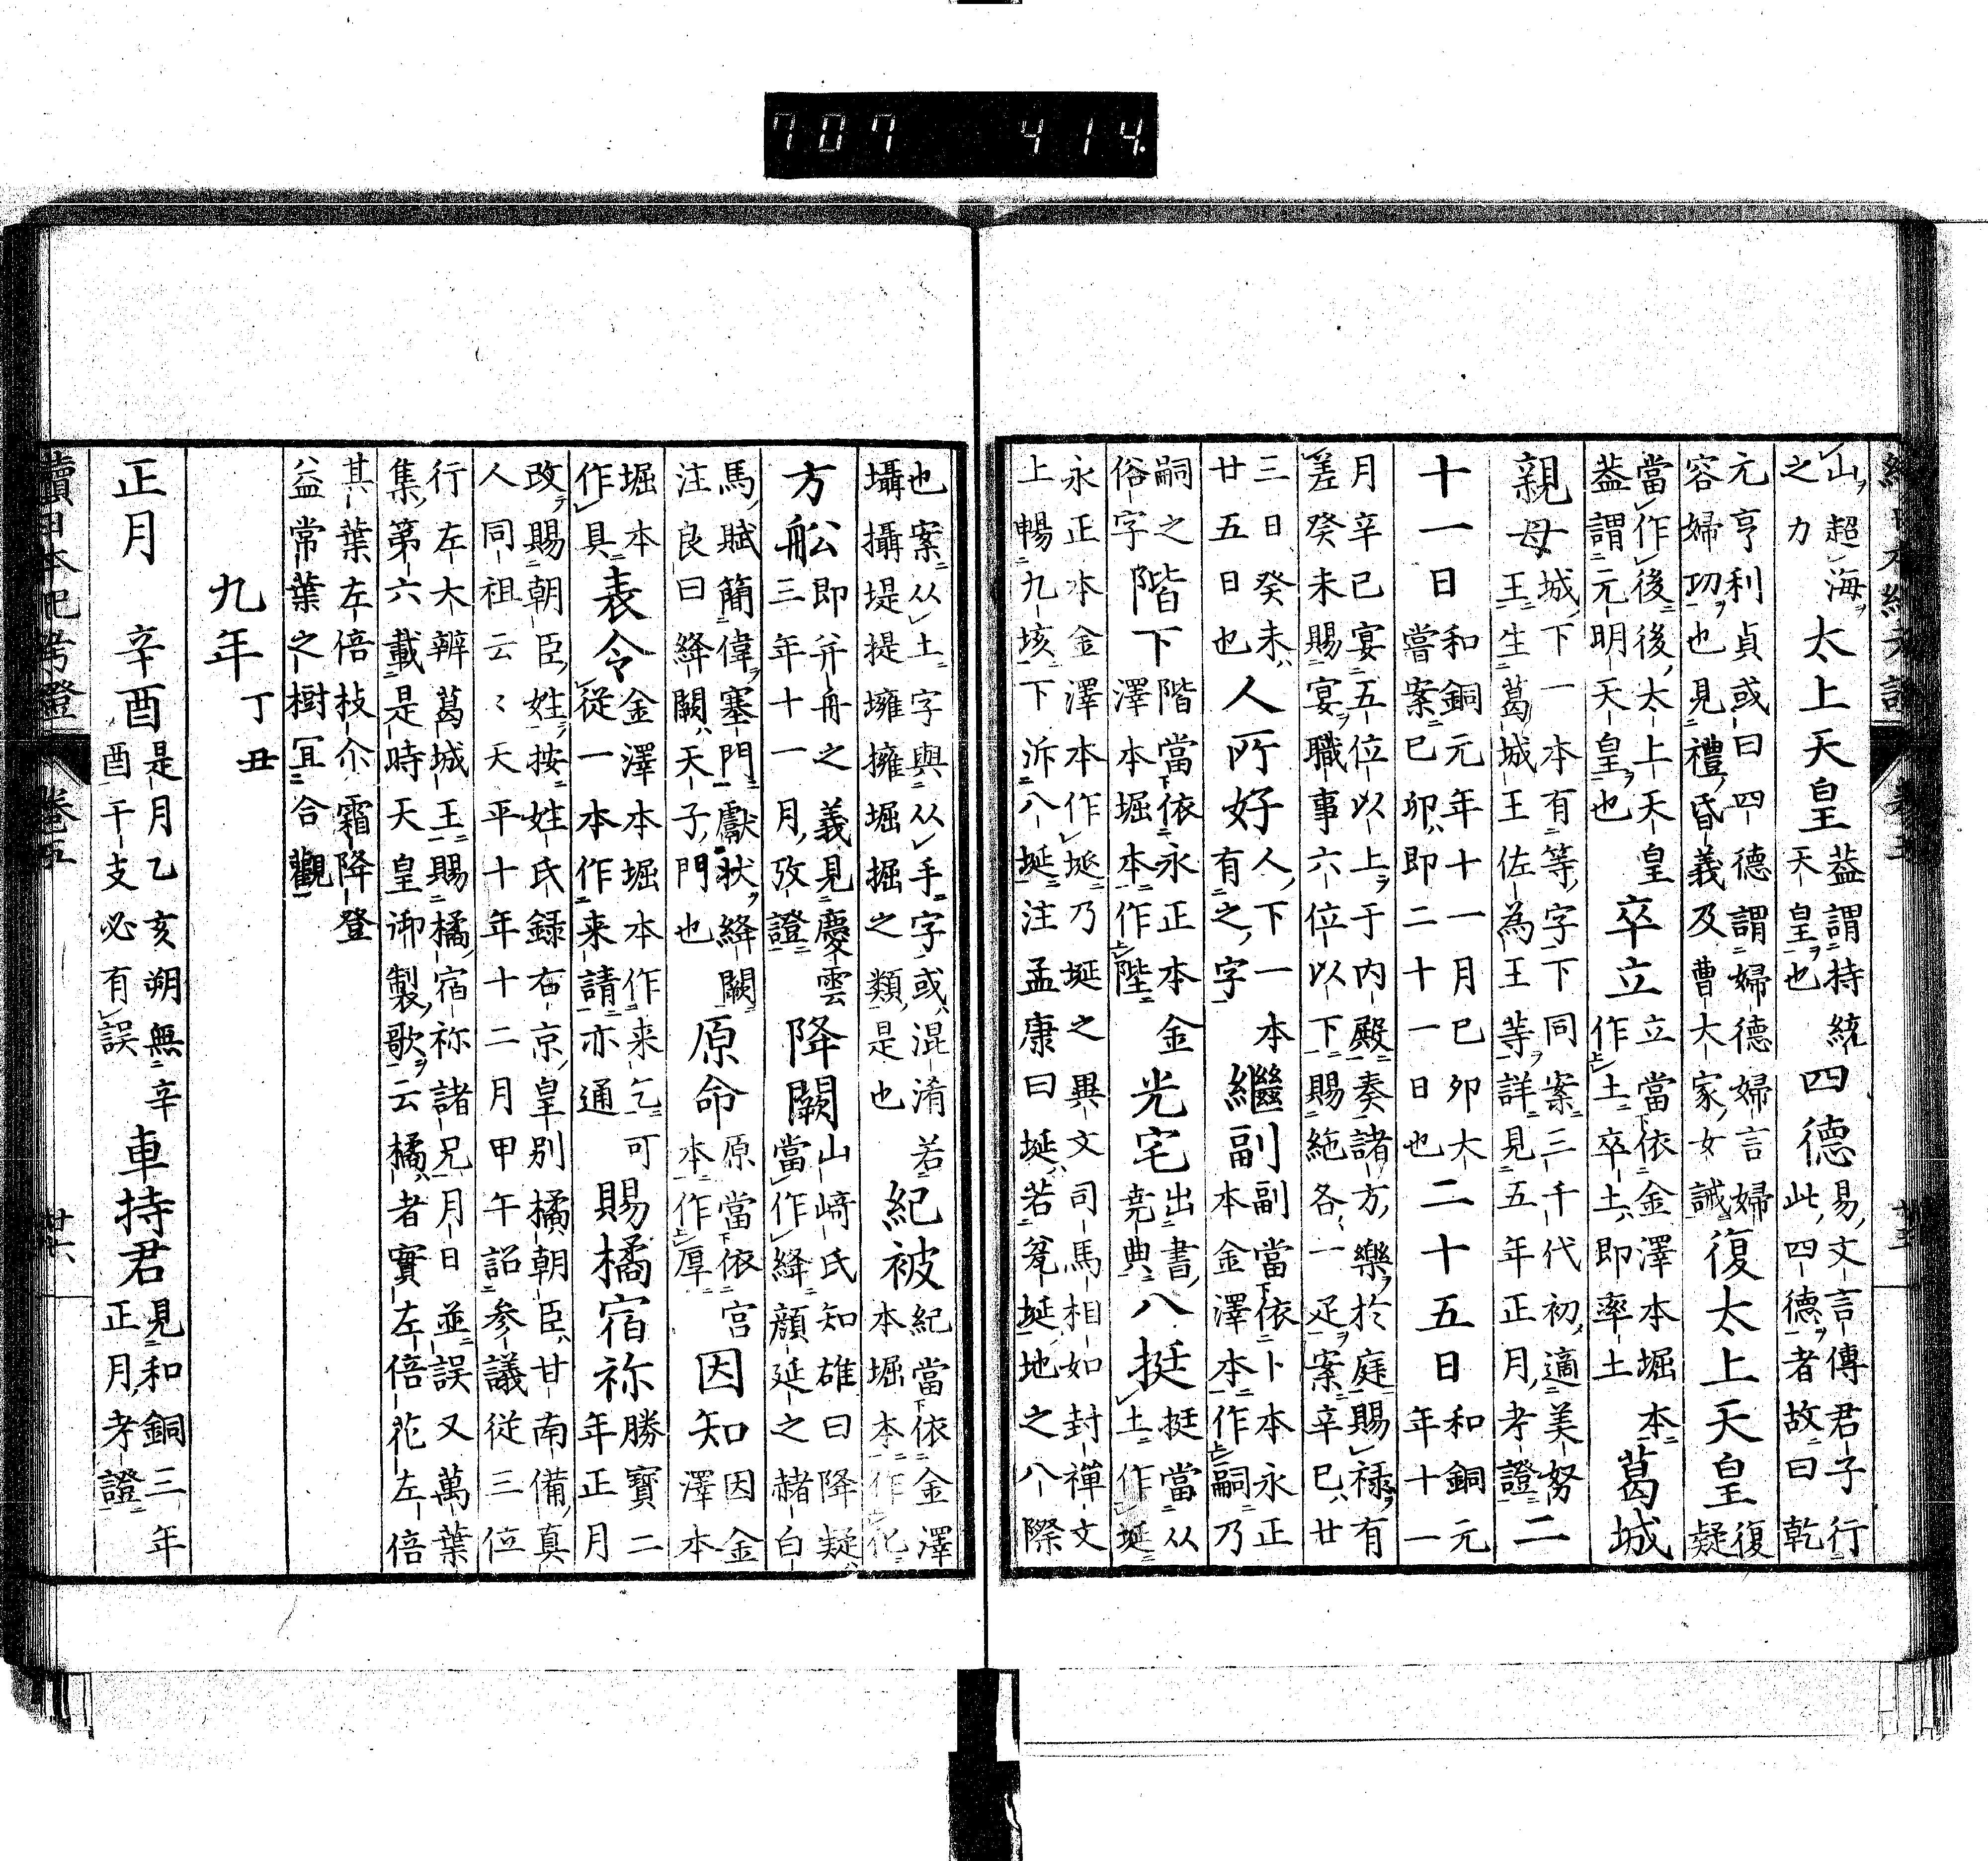 707 414.
山超海之力太上天皇蓋謂持統天皇也四德易文言傳君子行此四德者故曰乾
元亨利貞或曰四德謂婦德婦言婦容婦功也見禮昏義及曹大家女誡復太上天皇復疑
當作後後太上天皇蓋謂元明天皇也卒立立當依金澤本堀本作土卒土即率土葛城
親母城下一本有等字下同案三千代初適美努王生葛城王佐為王等詳見五年正月考證二
十一日和銅元年十一月己卯大嘗案己卯即二十一日也二十五日和銅元年十一
月辛巳宴五位以上于内殿奏諸方樂於庭賜祿有差癸未賜宴職事六位以下賜絁各一疋案辛巳廿
三日癸未廿五日也人所好人下一本有之字繼副副當依卜本永正本金澤本作嗣乃
嗣之俗字階下階當依永正本金澤本堀本作陛光宅出書堯典八挺挺當从土作埏
永正本金澤本作埏乃埏之異文司馬相如封禪文上暢九垓下泝八埏注孟康曰埏若瓮埏地之八際
也案从土字與从手字或混淆若攝堤提壅擁堀掘之類是也紀被紀當依金澤本堀本作化
方舩即并舟之義見慶雲三年十一月攷證降闕山﨑氏知雄曰降疑當作絳顔延之赭白
馬賦簡偉塞門獻狀絳闕注良曰絳闕天子門也原命原當依宫本作厚因知因金澤本
堀本作具表令金澤本堀本作来乞可從一本作来請亦通賜橘宿祢勝寶二年正月
改賜朝臣姓按姓氏録右京皇别橘朝臣甘南備真人同祖云〻天平十年十二月甲午詔参議従三位
行左大辨葛城王賜橘宿祢諸兄月日並誤又萬葉集第六載是時天皇御製歌云橘者實左倍花左倍
其葉左倍枝介霜降登益常葉之樹冝合觀
九年丁丑
正月辛酉是月乙亥朔無辛酉干支必有誤車持君見和銅三年正月考證
續日本紀考證 卷五 廿六